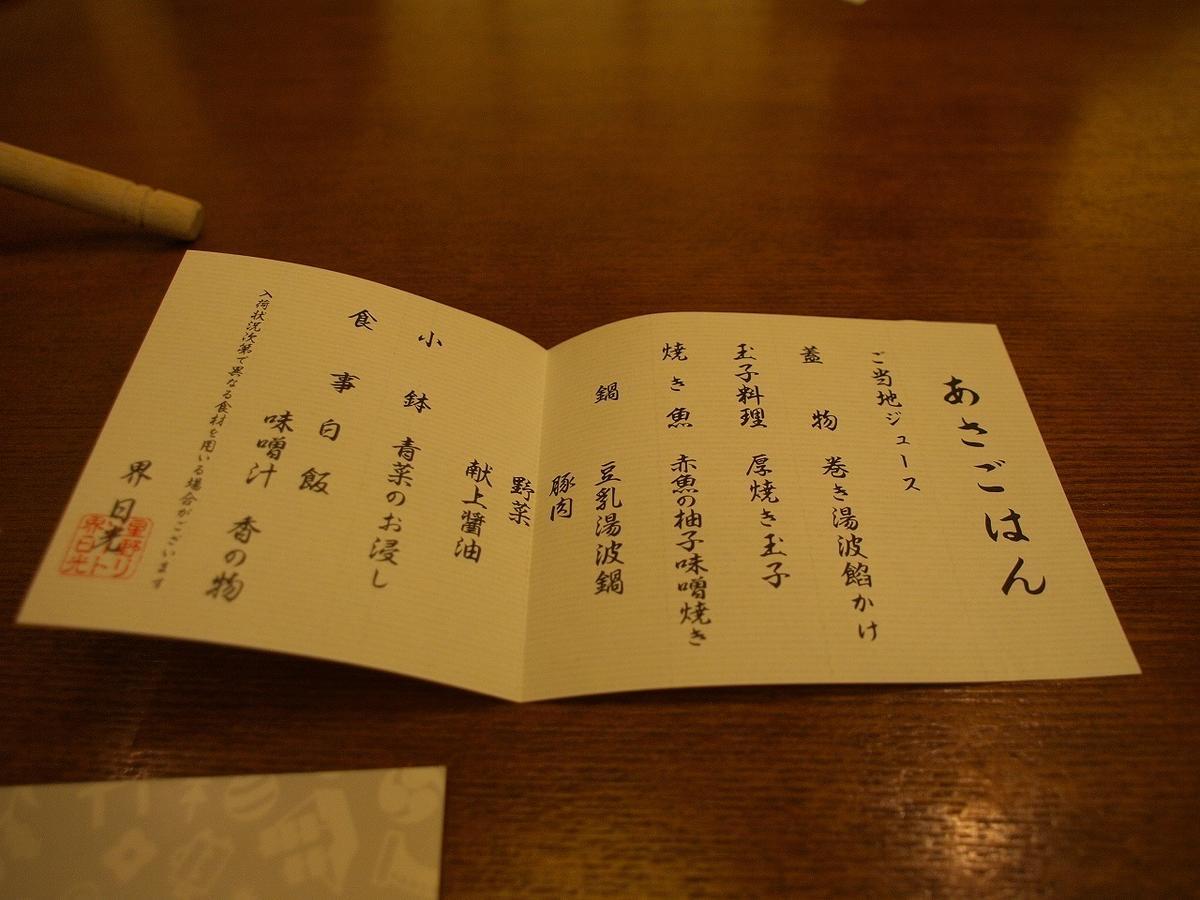 あさごはん
ご当地ジュース
蓋物 巻き湯波餡かけ
玉子料理 厚焼き玉子
焼き魚 赤魚の柚子味噌焼き
鍋 豆乳湯波鍋
豚肉
野菜
献上醤油
小鉢 青菜のお浸し
食事 白飯
味噌汁 香の物
入荷状況次第で異なる食材を用いる場合がございます
界 日光
星野リ
ゾート
界日光